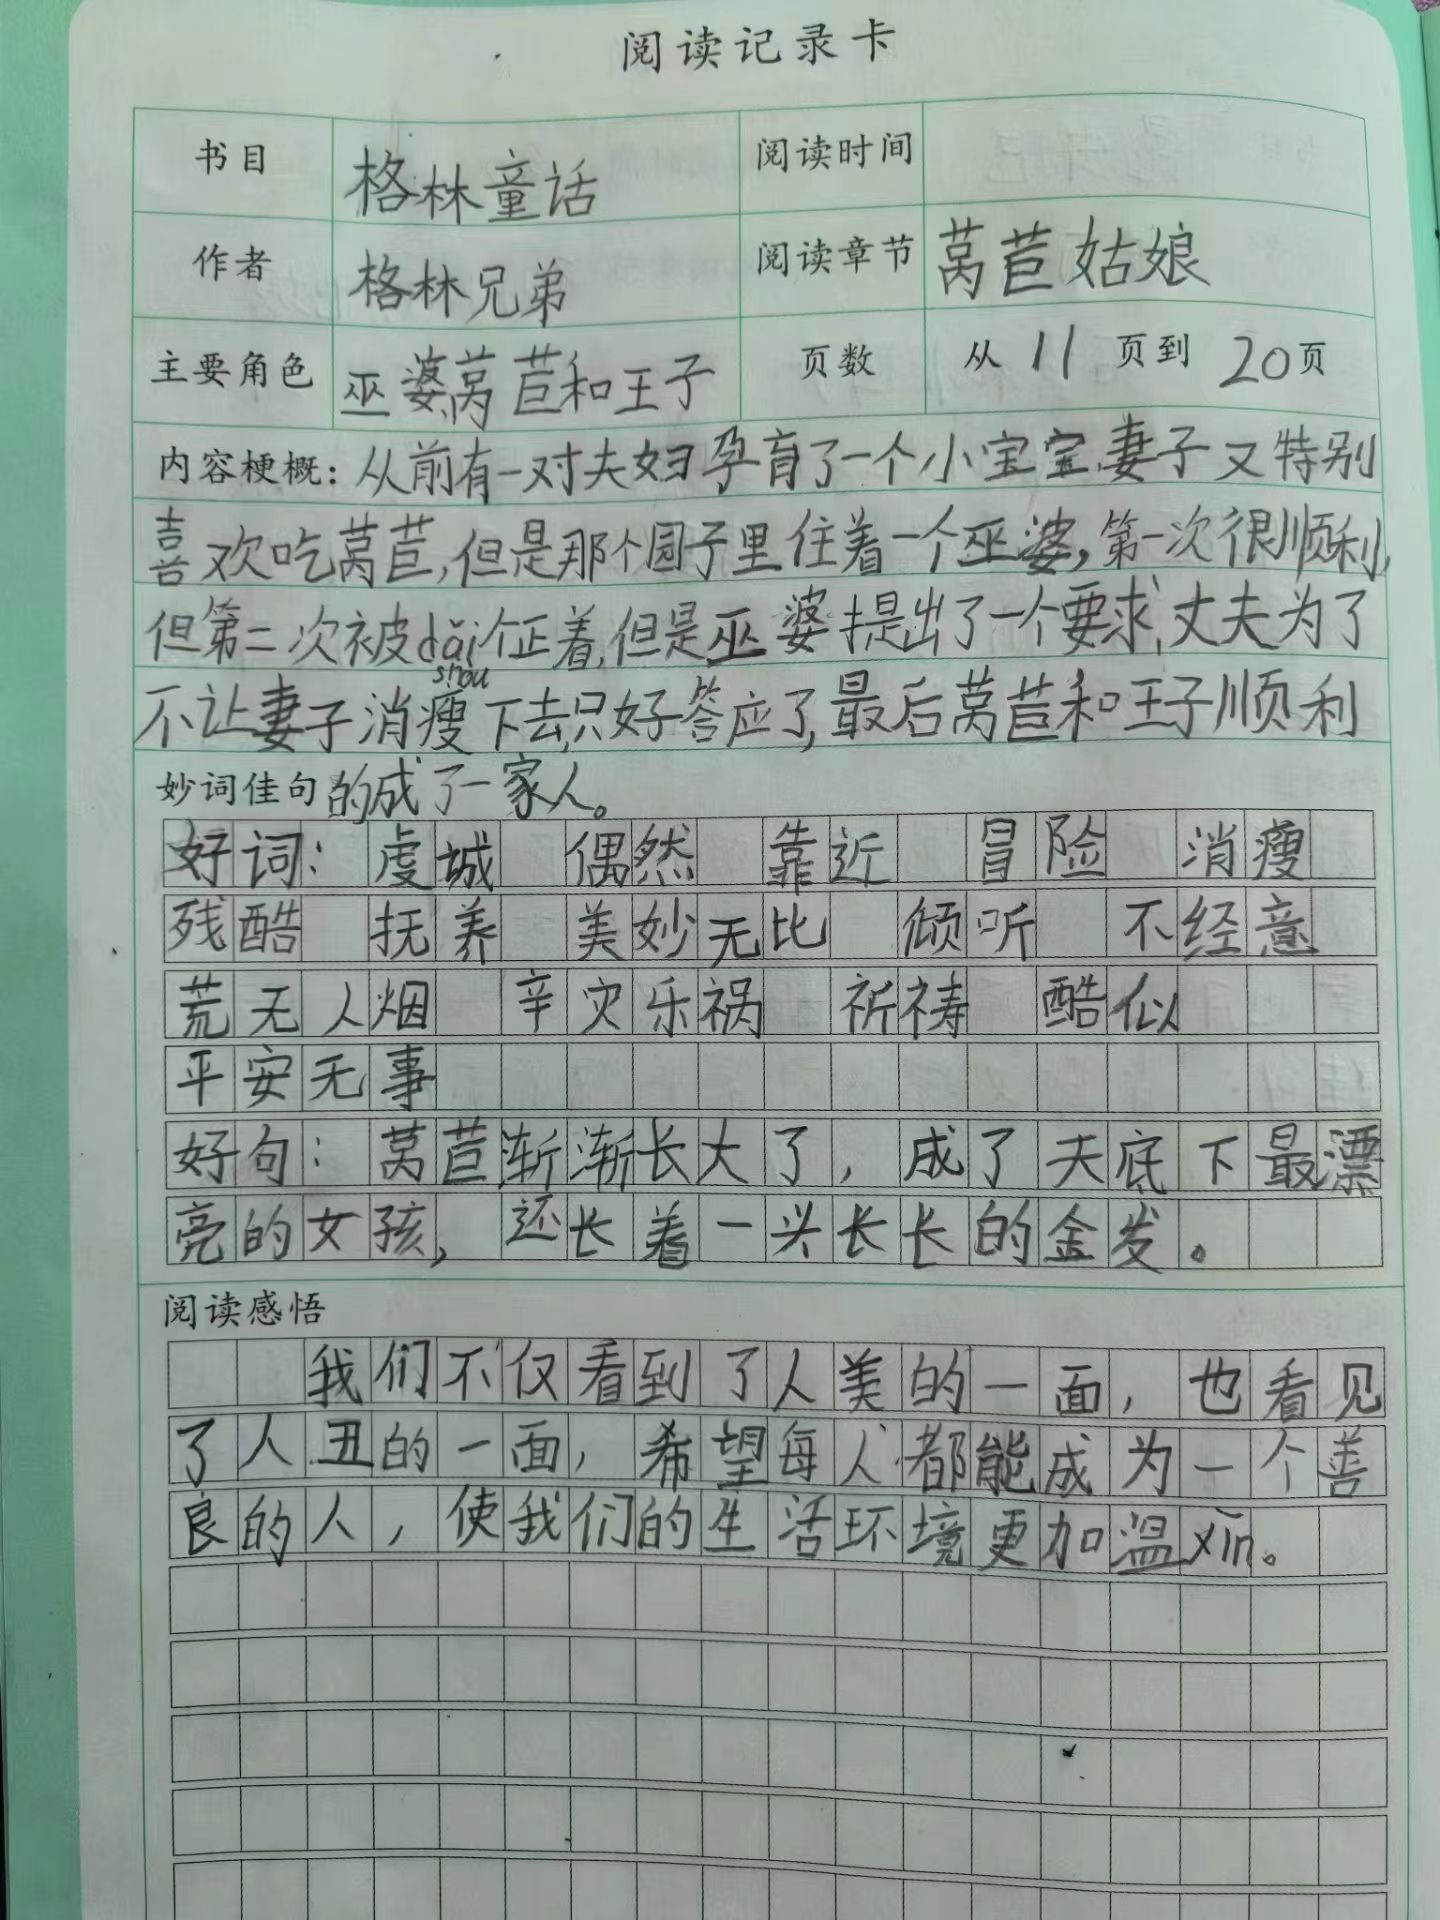 阅读记录卡
书目 格林童话 阅读时间
作者 格林兄弟 阅读章节 莴苣姑娘
主要角色 巫婆,莴苣和王子 页数 从11页到20页
内容梗概：从前有一对夫妇孕育了一个小宝宝,妻子又特别
喜欢吃莴苣,但是那个园子里住着一个巫婆,第一次很顺利,
但第二次被dǎi个正着,但是巫婆提出了一个要求,丈夫为了
shòu
不让妻子消瘦下去,只好答应了,最后莴苣和王子顺利
妙词佳句 的成了一家人。
好词：虔城 偶然 靠近 冒险 消瘦
残酷 抚养 美妙无比 倾听 不经意
荒无人烟 辛灾乐祸 祈祷 酷似
平安无事
好句：莴苣渐渐长大了，成了天底下最漂
亮的女孩，还长着一头长长的金发。
阅读感悟
我们不仅看到了人美的一面，也看见
了人丑的一面，希望每人都能成为一个善
良的人，使我们的生活环境更加温xīn。